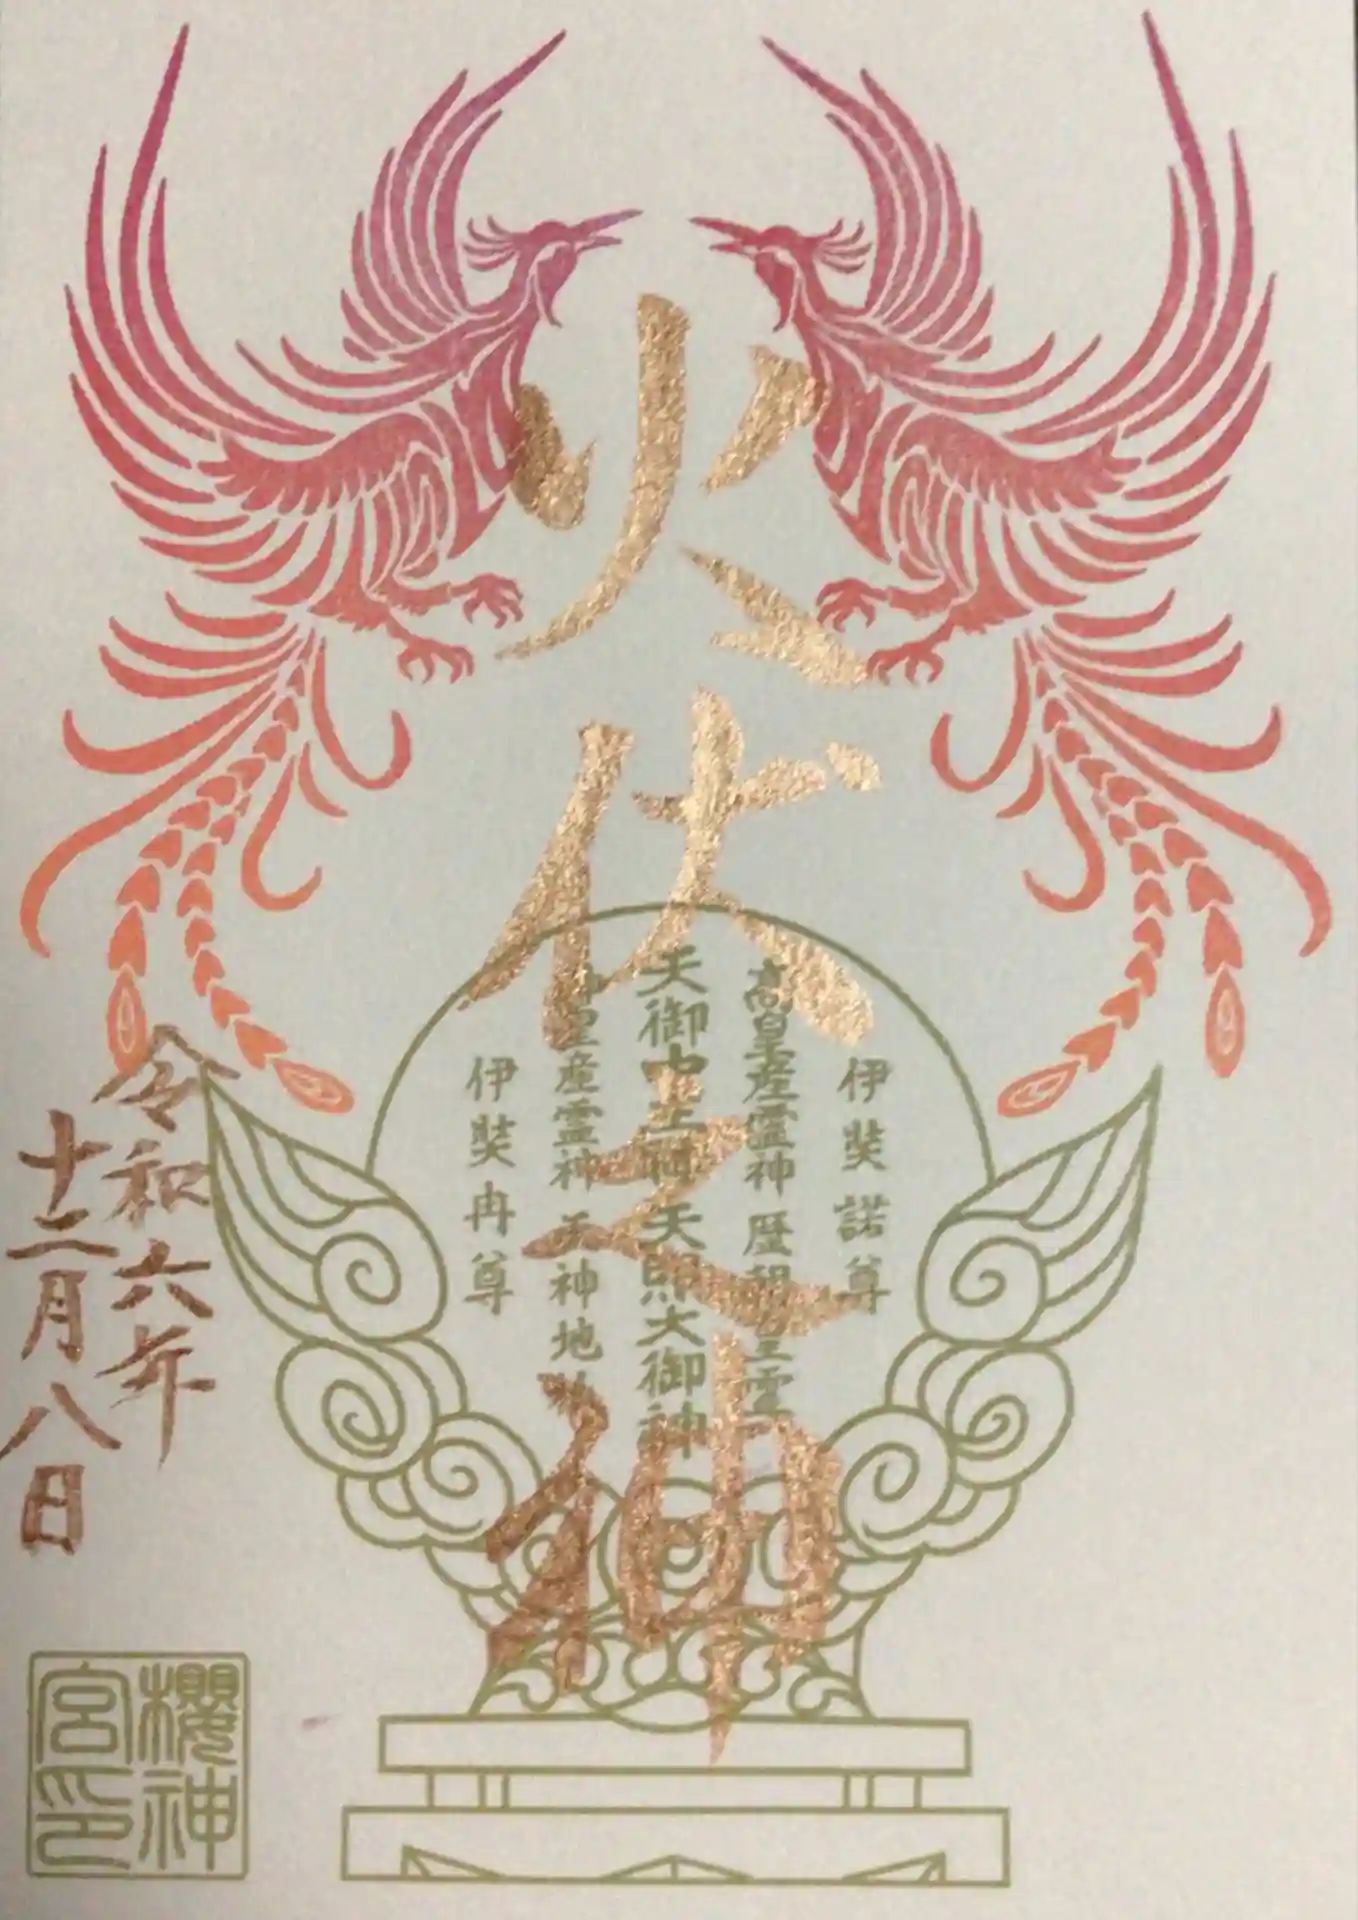 火伏之神
伊弉諾尊
高皇産霊神 歴朝皇霊
天御中主神 天照大御神
皇産霊神 天神地
伊弉冉尊
令和六年
十二月八日
櫻神
宮印